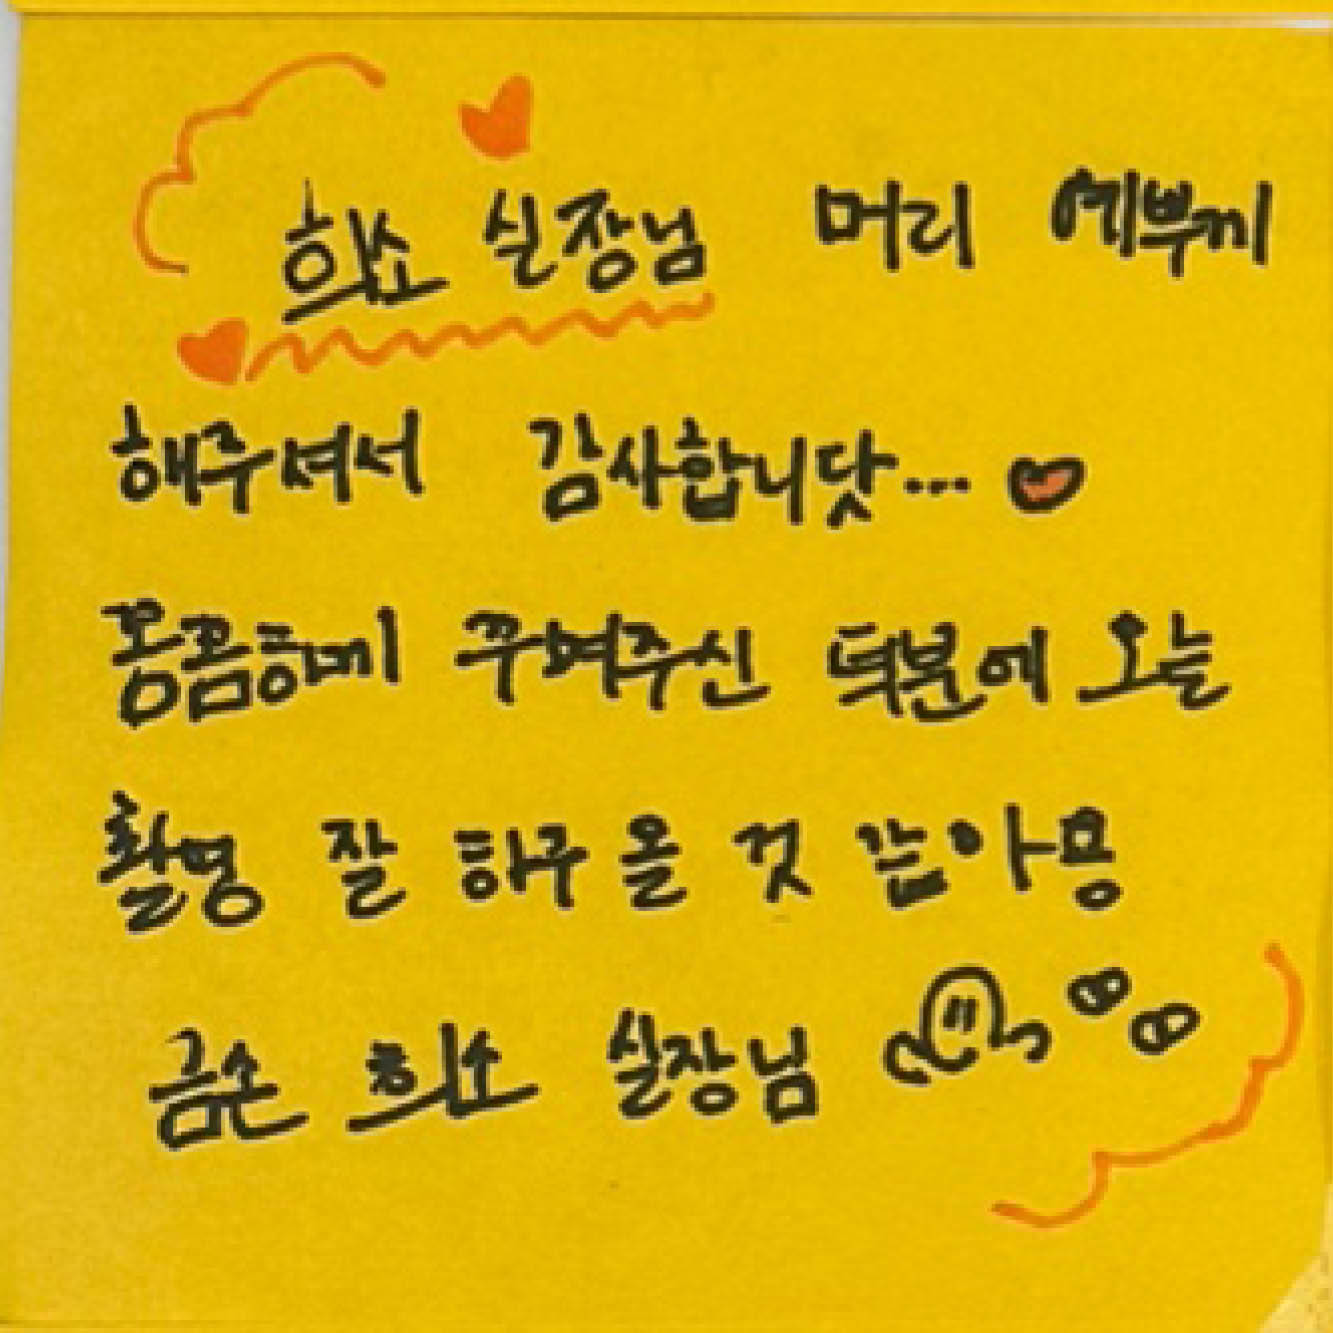 희소 실장님 머리 예쁘게
해주셔서 감사합니닷...
꼼꼼하게 꾸며주신 덕분에 오늘
촬영 잘 하구 올 것 같아용
금손 희소 실장님